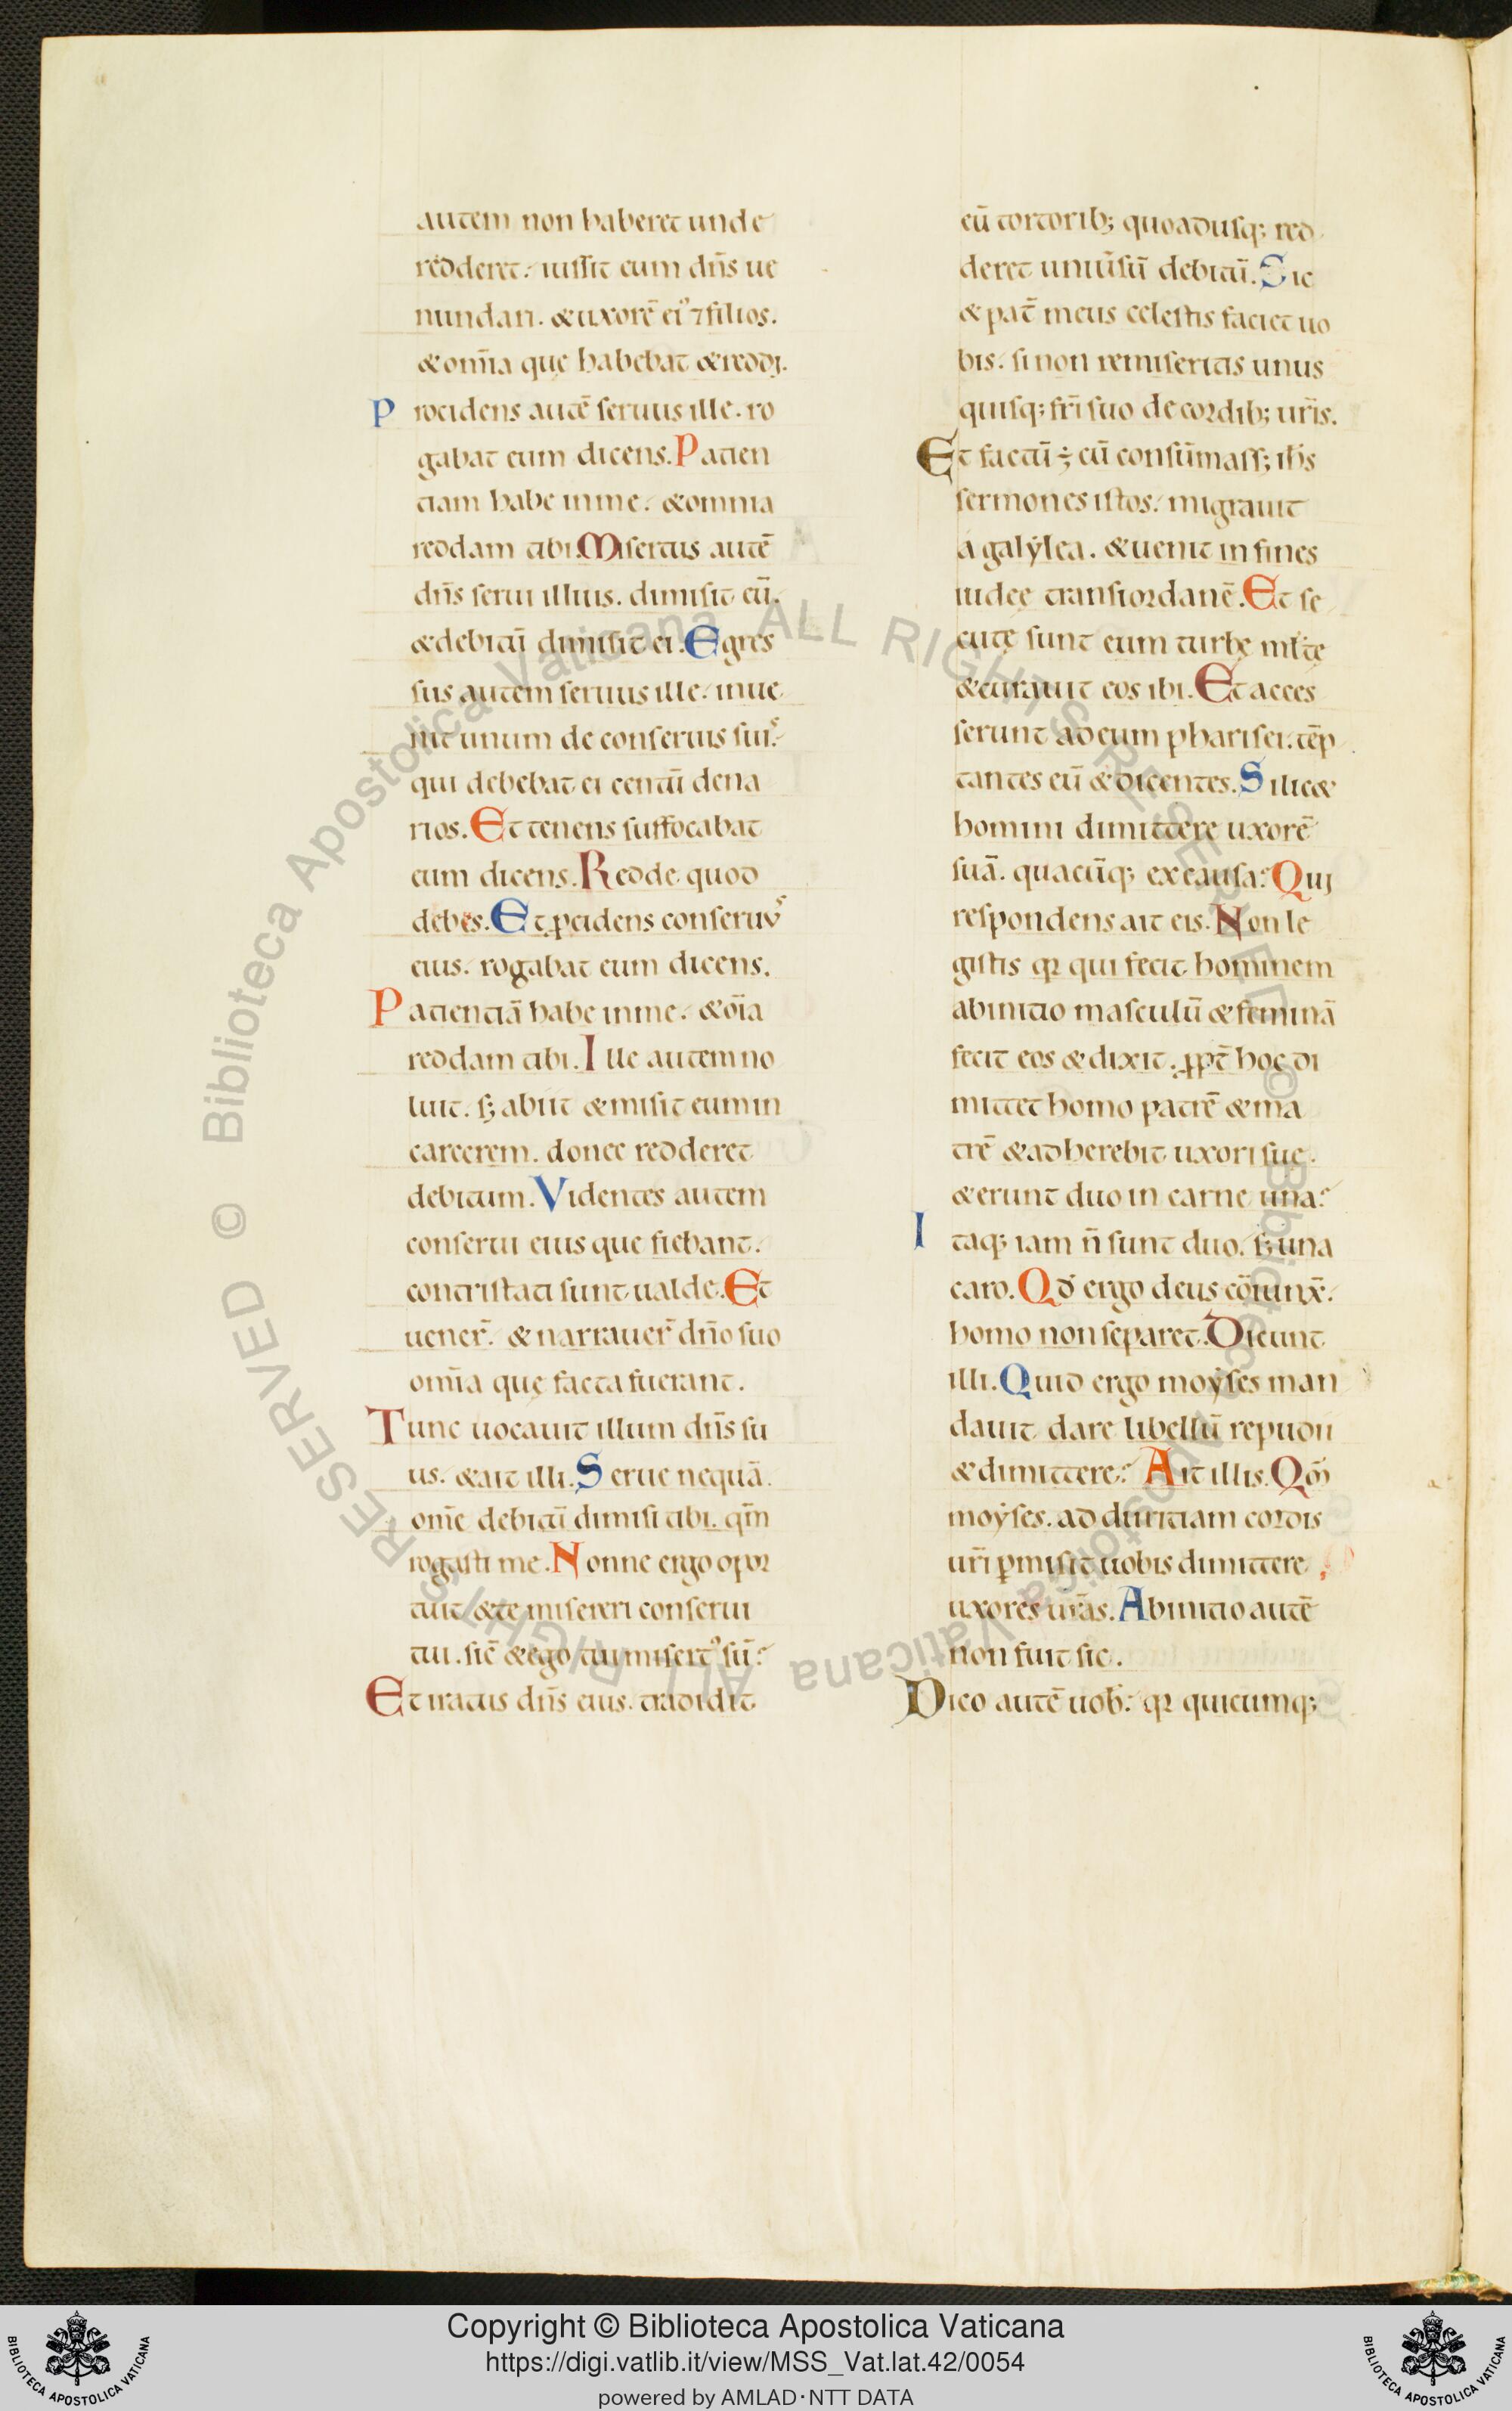 autem non haberet unde
redderet. iussit eum dn̄s ue
nundari. &uxorē ei᾽ ⁊filios.
&om̄ia quę habebat &reddi.
Procidens autē seruus ille. ro
gabat eum dicens. Patien
tiam habe in me. &omnia
reddam tibi. Misertus autē
dn̄s serui illius. dimisit eū.
&debitū dimissit ei. Egres
sus autem seruus ille. inue
nit unum de conseruis suis.
qui debebat ei centū dena
rios. Et tenens suffocabat
eum dicens. Redde quod
debes. Et ꝓcidens conseruus
eius. rogabat eum dicens.
Patientiā habe in me. &oīa
reddam tibi. Ille autem no
luit. sꝫ abiit &misit eum in
carcerem. donec redderet
debitum. Videntes autem
conserui eius que fiebant.
contristati sunt ualde. Et
uener̄. &narrauer̄ dn̄o suo
om̄ia quę facta fuerant.
Tunc uocauit illum dn̄s su
us. &ait illi. Serue nequā.
om̄e debitū dimisi tibi. qm̄
rogasti me. Nonne ergo opor
tuit &te misereri conserui
tui. sic̄ &ego tui misert᾽ sū?
Et iratus dn̄s eius. tradidit
eū tortoribꝫ quoadusqꝫ red
deret uniūsū debitū. Sic
&pat̄ meus celestis faciet uo
bis. si non remiseritis unus
quisqꝫ fr̄i suo de cordibꝫ ur̄is.
Et factū ÷ cū consūmassꝫ ih̄s
sermones istos. migrauit
a galẏlea. &uenit in fines
iudeę transiordanē. Et se
cutę sunt eum turbę ml̄tę
&curauit eos ibi. Et acces
serunt ad eum pharisei. tēp
tantes eū &dicentes. Si lic&
homini dimittere uxorē
suā. quacūqꝫ ex causa? Qui
respondens ait eis. Non le
gistis qꝛ qui fecit hominem
ab initio masculū &feminā
fecit eos &dixit. ꝓpt̄ hoc di
mittet homo patrē &ma
trē &adherebit uxori suę.
&erunt duo in carne una?
Itaqꝫ iam n̄ sunt duo. sꝫ una
caro. Qd̄ ergo deus cōiunx̄.
homo non separet. Dicunt
illi. Quid ergo moẏses man
dauit dare libellū repudii
&dimittere? Ait illis. Qm̄
moẏses. ad duritiam cordis
ur̄i ꝑmisit uobis dimittere
uxores ur̄as. Ab initio autē
non fuit sic.
Dico autē uob̄. qꝛ quicumqꝫ
© Biblioteca Apostolica Vaticana ALL RIGHTS RESERVED
© Biblioteca Apostolica Vaticana ALL RIGHTS RESERVED
Copyright © Biblioteca Apostolica Vaticana
https://digi.vatlib.it/view/MSS_Vat.lat.42/0054
powered by AMLAD·NTT DATA
BIBLIOTECA APOSTOLICA VATICANA
BIBLIOTECA APOSTOLICA VATICANA